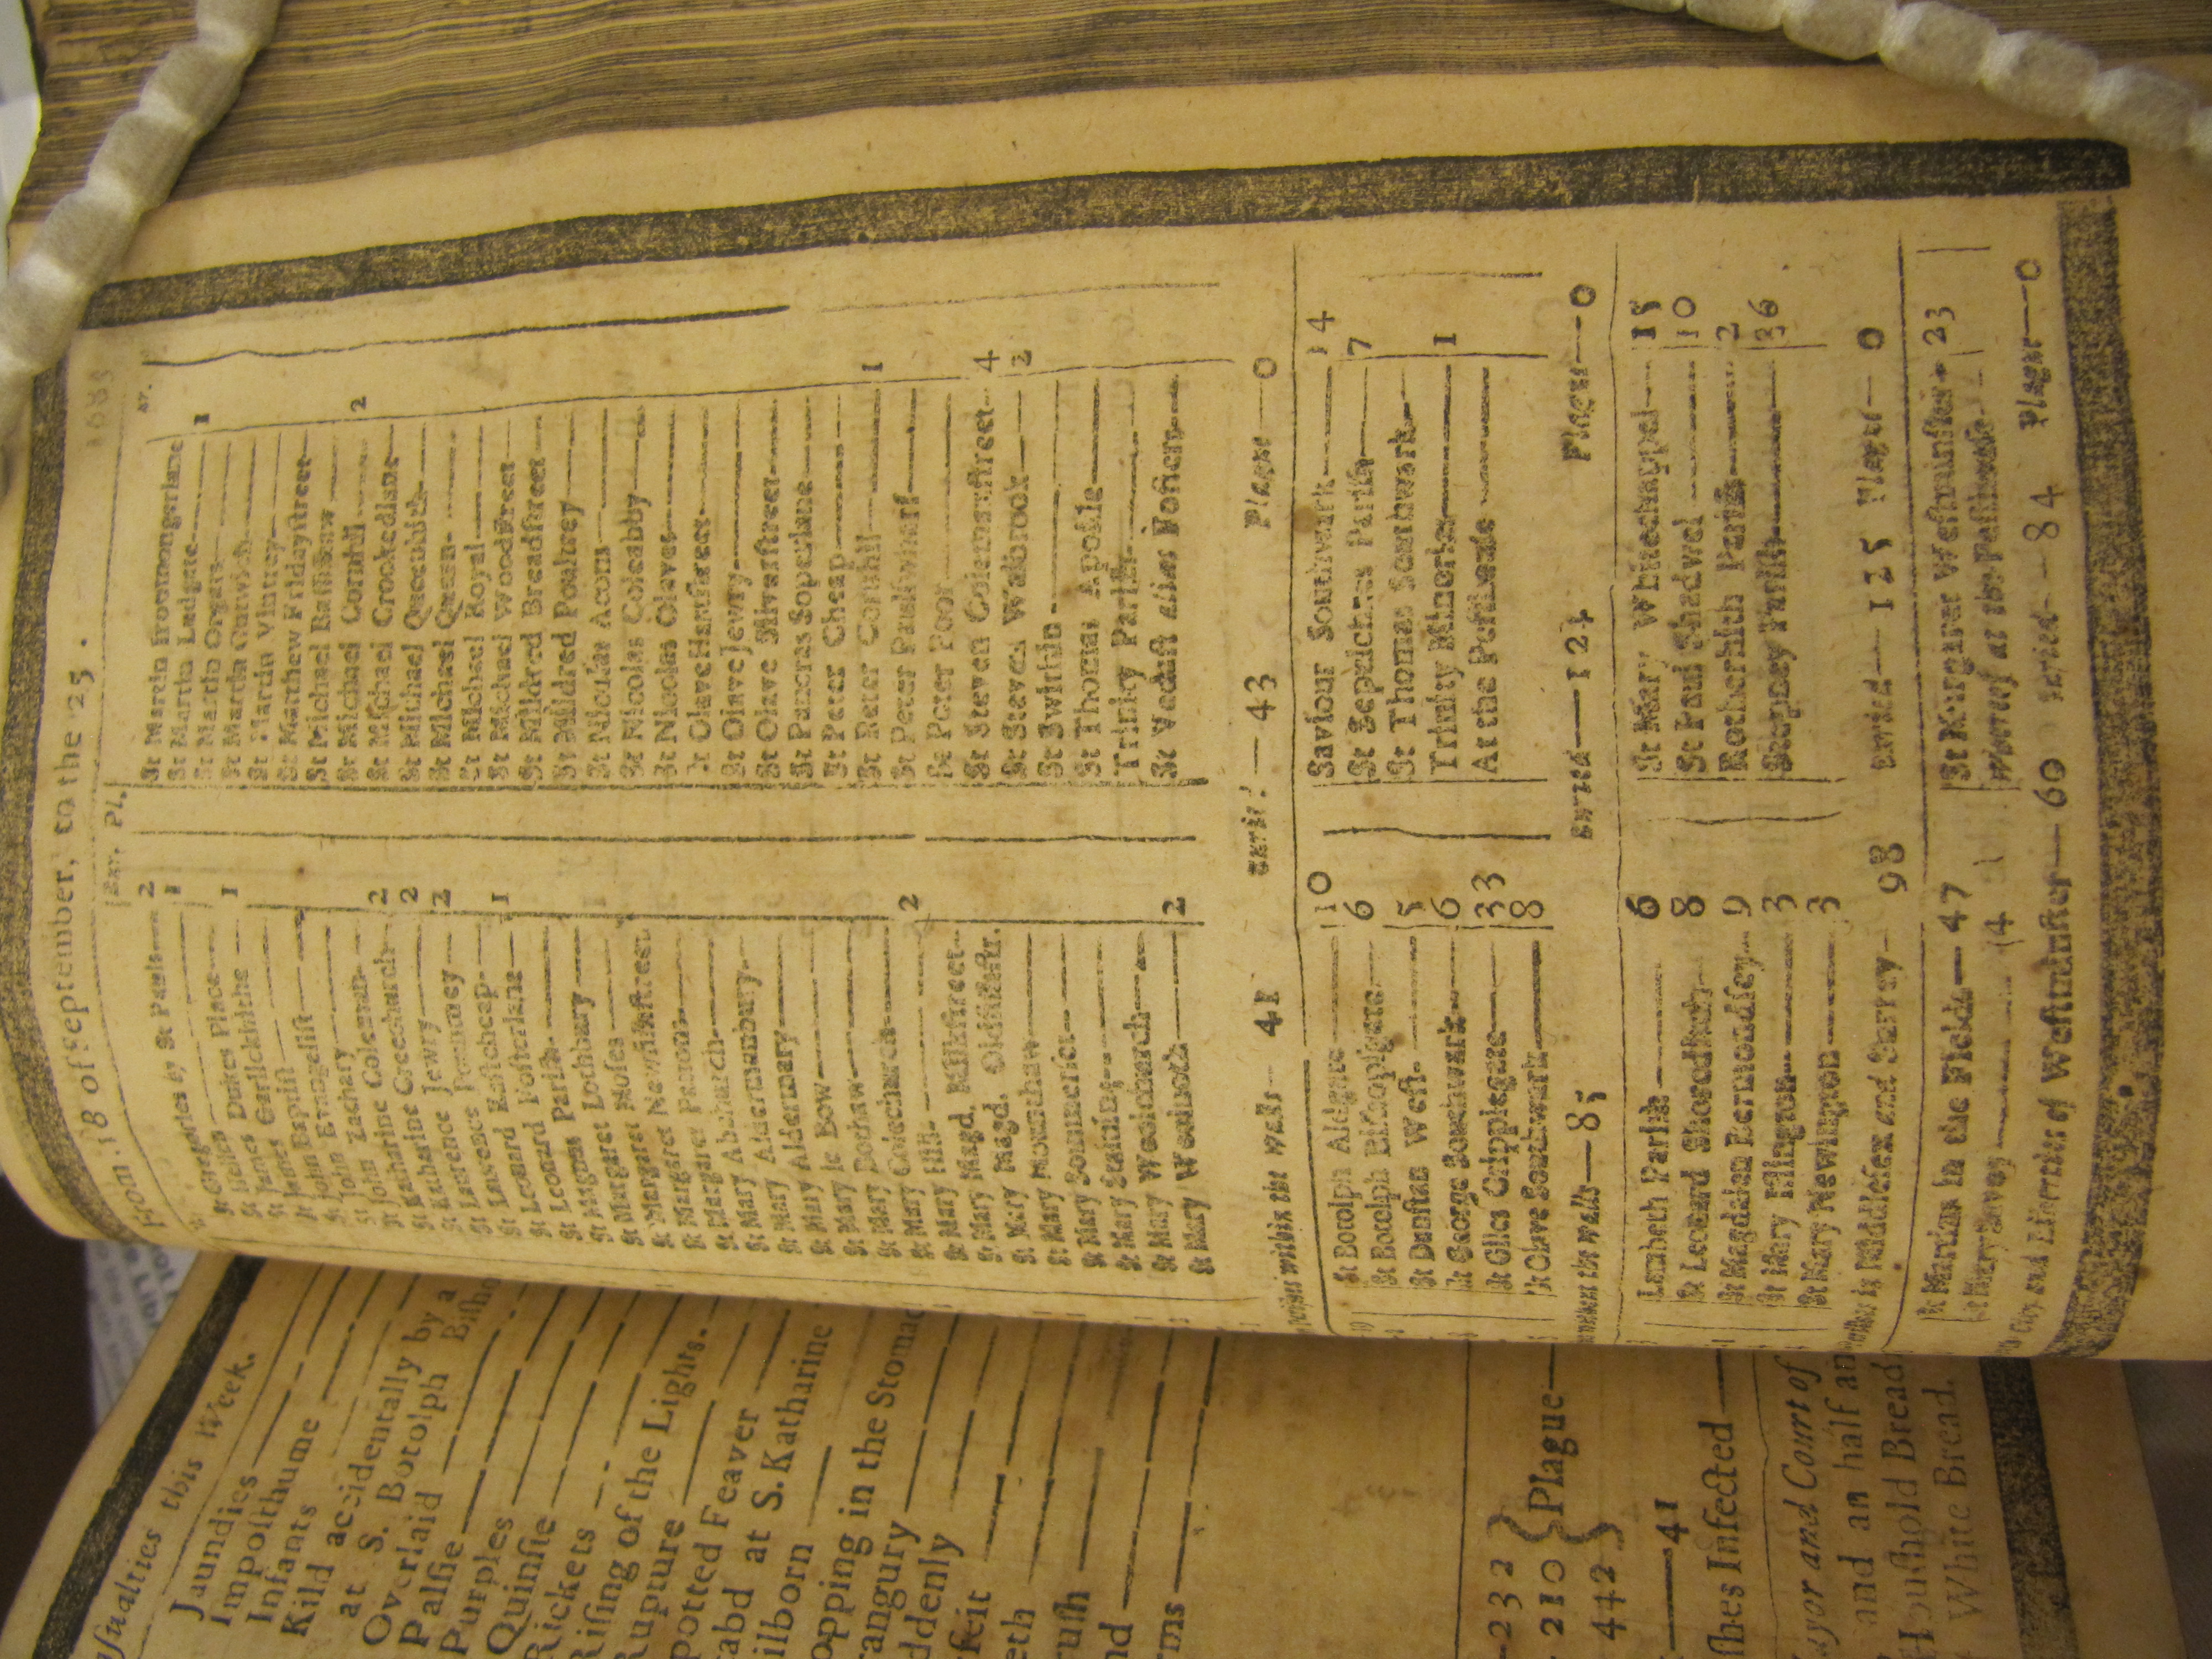 From 18 of September, to the 25.
1683
Bur. Pl.
Gregories by St Pauls— 2
St Hellen— 1
St James Dukes Place—
St James Garlickhithe— 1
St John Baptist—
St John Evangelist—
St John Zachary—
St Katharine Coleman— 2
St Katharine Creechurch— 2
St Laurence Jewry— 2
St Laurence Pountney—
St Leonard Eastcheap— 1
St Leonard Fosterlane—
St Magnus Parish—
St Margaret Lothbury—
St Margaret Moses—
St Margaret Newfishstreet
St Margaret Pattons—
St Mary Abchurch—
St Mary Aldermanbury—
St Mary Aldermary—
St Mary le Bow—
St Mary Bothaw—
St Mary Colechurch—
St Mary Hill— 2
St Mary Magd. Milkstreet—
St Mary Magd. Oldfishstr.
St Mary Mounthaw—
St Mary Sommerset—
St Mary Staining—
St Mary Woolchurch—
St Mary Woolnoth— 2
St Martin Ironmongerlane
St Martin Ludgate— 1
St Martin Orgars—
St Martin Outwich—
St Martin Vintrey—
St Matthew Fridaystreet—
St Michael Bassishaw—
St Michael Cornhil— 2
St Michael Crookedlane—
St Michael Queenhith—
St Michael Quern—
St Michael Royal—
St Michael Woodstreet—
St Mildred Breadstreet—
St Mildred Poultrey—
St Nicolas Acons—
St Nicolas Coleabby—
St Nicolas Olaves—
St Olave Hartstreet—
St Olave Jewry—
St Olave Silverstreet—
St Pancras Soperlane—
St Peter Cheap—
St Peter Cornhil— 1
St Peter Paulswharf—
St Peter Poor—
St Steven Colemanstreet— 4
St Steven Walbrook— 2
St Swithin—
St Thomas Apostle—
Trinity Parish—
St Vedast alias Fosters—
within the walls— 41
Buried— 43 Plague— 0
St Botolph Aldgate— 10
St Botolph Bishopsgate— 6
St Dunstan West— 5
St George Southwark— 6
St Giles Cripplegate— 33
St Olave Southwark— 8
Saviour Southwark— 14
St Sepulchres Parish— 7
St Thomas Southwark—
Trinity Minories— 1
At the Pesthouse—
without the walls— 85
Buried— 124 Plague— 0
Lambeth Parish— 6
St Leonard Shoreditch— 8
St Magdalen Bermondsey— 9
St Mary Islington— 3
St Mary Newington— 3
St Mary Whitechappel— 15
St Paul Shadwel— 10
Rotherhith Parish— 2
Stepney Parish— 36
in Middlesex and Surrey— 98
Buried— 125 Plague— 0
St Martins in the Fields— 47
St Mary Savoy— 4
St Margaret Westminster— 23
whereof at the Pesthouse—
City and Liberties of Westminster— 60
Buried— 84 Plague— 0
sualties this Week.
Jaundies
Imposthume
Infants
Kild accidentally by a
at S. Botolph Bisho
Overlaid
Palsie
Purples
Quinsie
Rickets
Rising of the Lights.
Rupture
potted Feaver
tabd at S. Katharine
ilborn
opping in the Stomac
rangury
ddenly
rfeit
eth
rush
nd
rms
232
210 } Plague
442
41
shes Infected
yor and Court of
and an half an
Houshold Bread
White Bread.